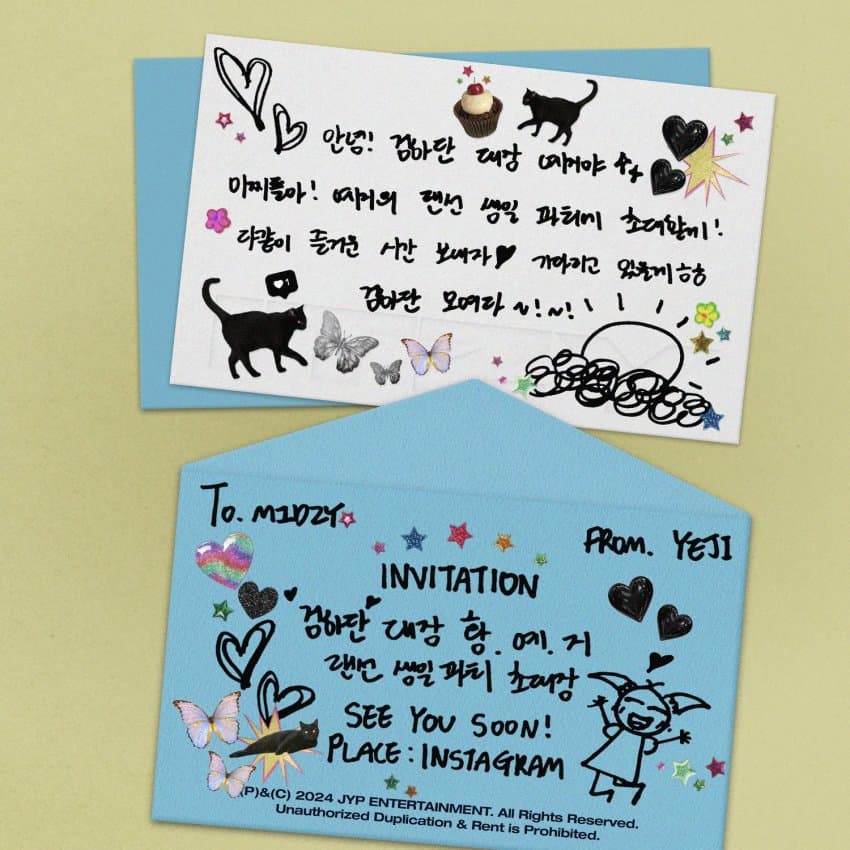 안녕! 검하단 대장 예지야
믿찌들아! 예지의 랜선 생일 파티에 초대할게!
다같이 즐거운 시간 보내자♥ 기다리고 있을게ㅎㅎ
검하단 모여라~!~!
To. MIDZY
FROM. YEJI
INVITATION
검하단 대장 황.예.지
랜선 생일파티 초대장
SEE YOU SOON!
PLACE : INSTAGRAM
(P)&(C) 2024 JYP ENTERTAINMENT. All Rights Reserved.
Unauthorized Duplication & Rent is Prohibited.